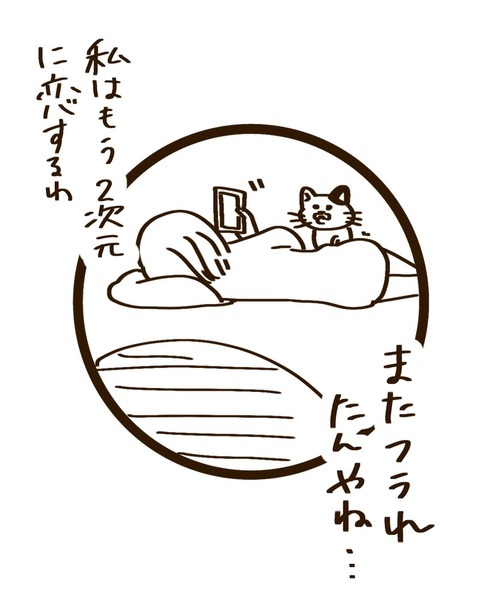 私はもう2次元
に恋するわ
またフラれ
たんやね…